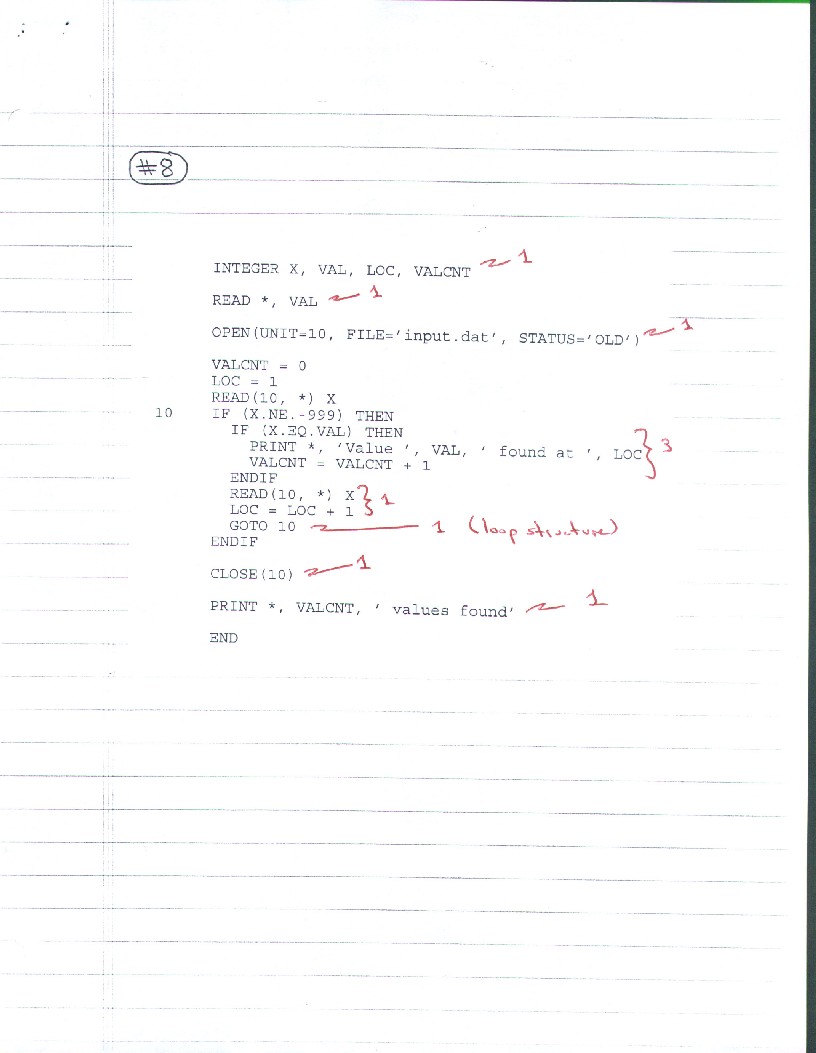 #8
INTEGER X, VAL, LOC, VALCNT 1
READ *, VAL 1
OPEN(UNIT=10, FILE='input.dat', STATUS='OLD') 1
VALCNT = 0
LOC = 1
READ(10, *) X
10 IF (X.NE.-999) THEN
IF (X.EQ.VAL) THEN
PRINT *, 'Value ', VAL, ' found at ', LOC } 3
VALCNT = VALCNT + 1
ENDIF
READ(10, *) X } 1
LOC = LOC + 1
GOTO 10 1 (loop structure)
ENDIF
CLOSE(10) 1
PRINT *, VALCNT, ' values found' 1
END